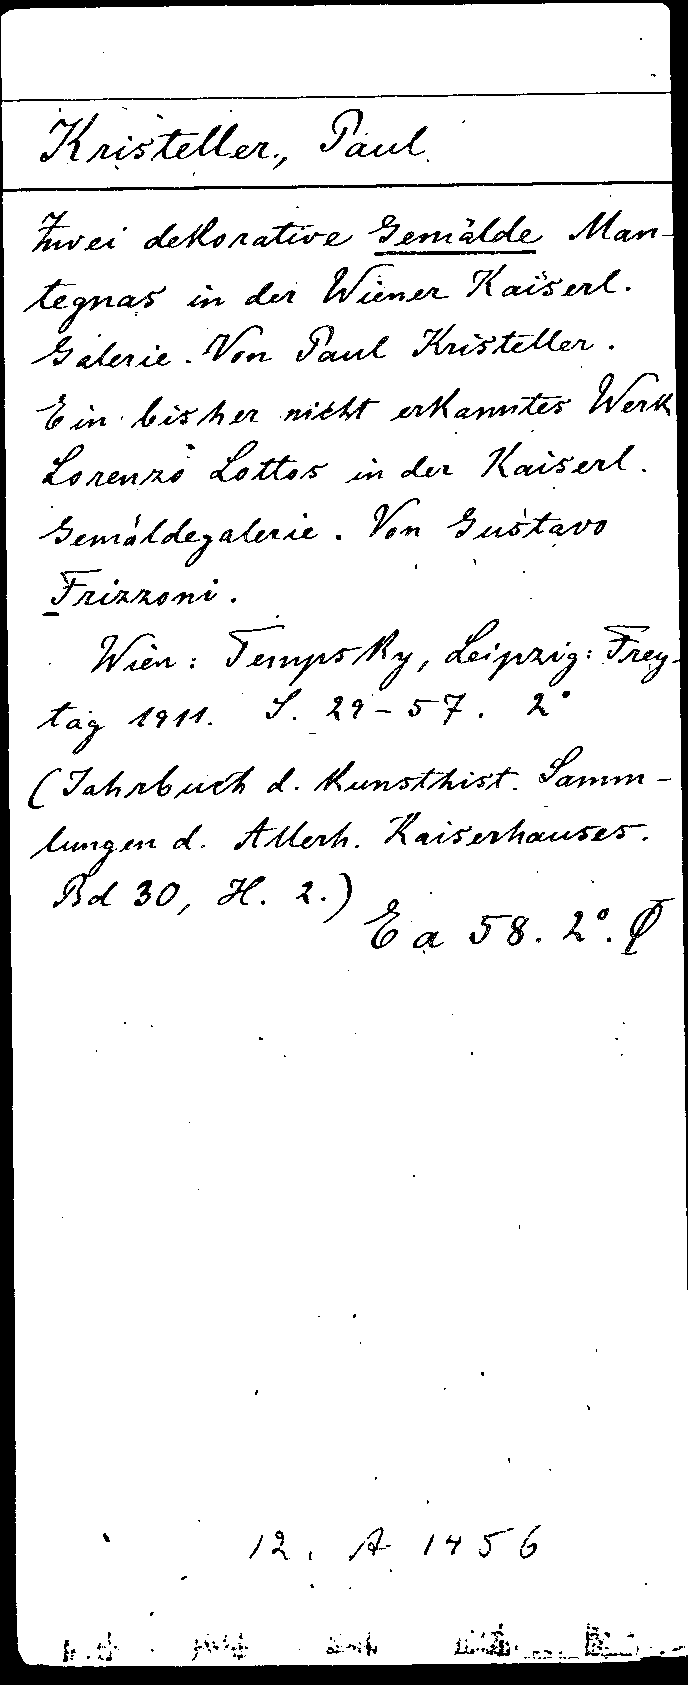 Kristeller, Paul
Zwei dekorative Gemälde Man-
tegnas in der Wiener Kaiserl.
Galerie. Von Paul Kristeller.
Ein bisher nicht erkanntes Werk
Lorenzo Lottos in der Kaiserl.
Gemäldegalerie. Von Gustavo
Frizzoni.
Wien: Tempsky, Leipzig: Frey-
tag 1911. S. 29-57. 2°
(Jahrbuch d. Kunsthist. Samm-
lungen d. Allerh. Kaiserhauses.
Bd 30, H. 2.)
Ea 58. 2°.
12. A 1456